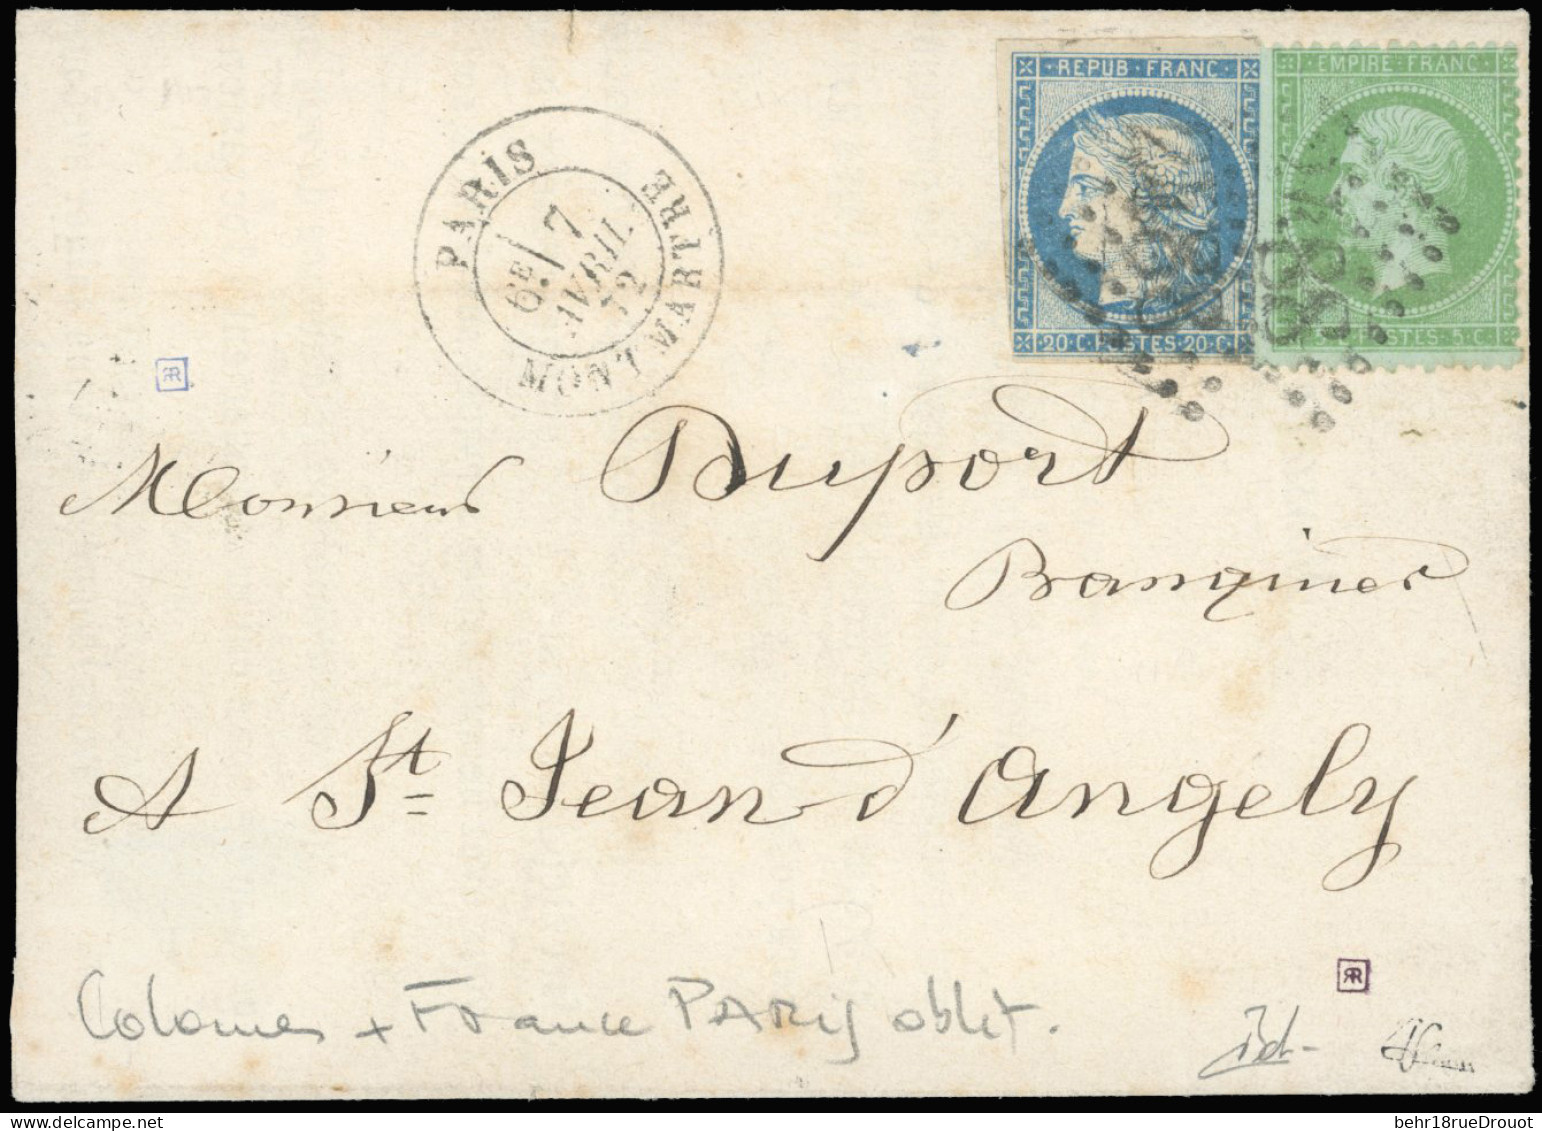 REPUB·FRANC
20·C·POSTES·20·C
EMPIRE·FRANC
POSTES·5·C
PARIS
6E 7
AVRIL
72
MONTMARTRE
Monsieur Duport
Banquier
A St Jean d'Angely
Colonies + France PARis oblt.
behr18rueDrouot